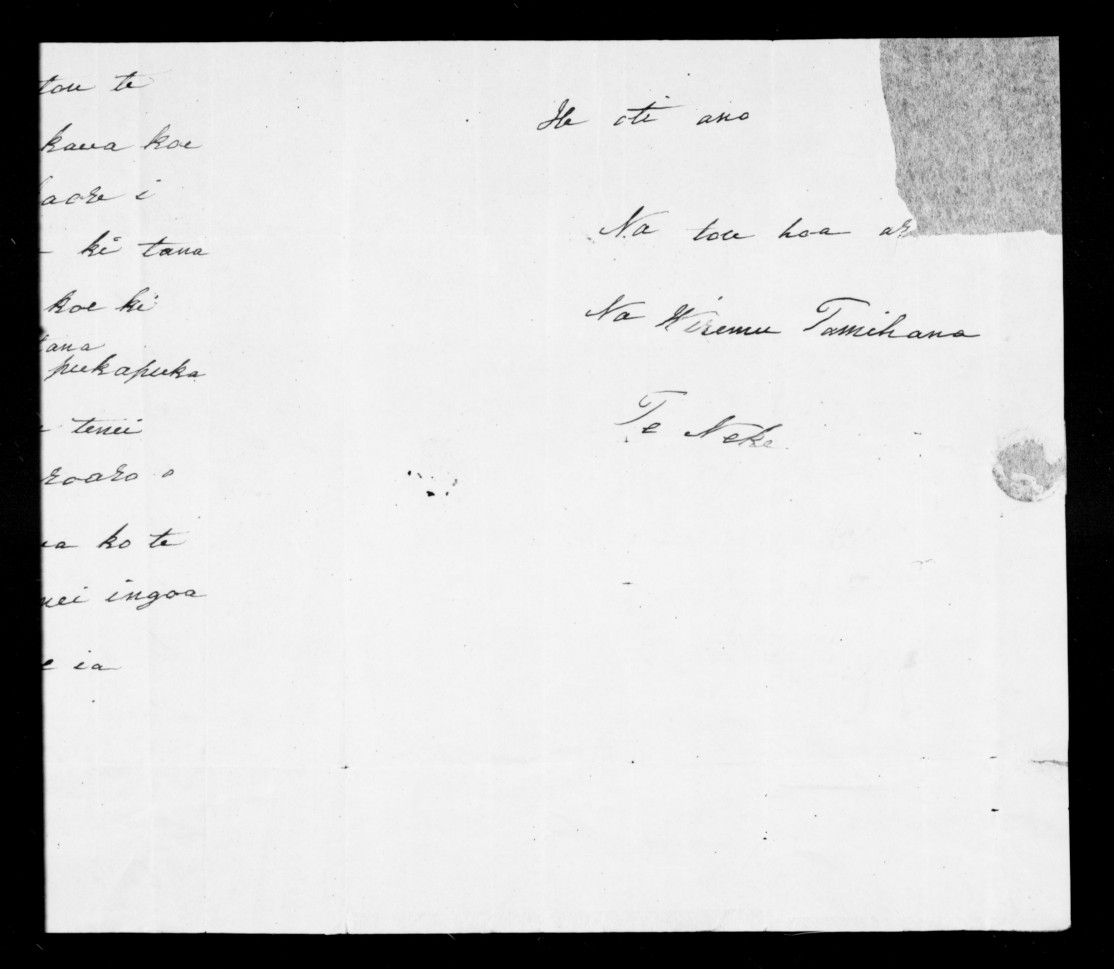 tou te
kaua koe
kaore i
ki tana
koe ki
tana
pukapuka
tenei
roaro o
ko te
nei ingoa
e ia
He oti ano
Na tou hoa ar
Na Wiremu Tamihana
Te Neke